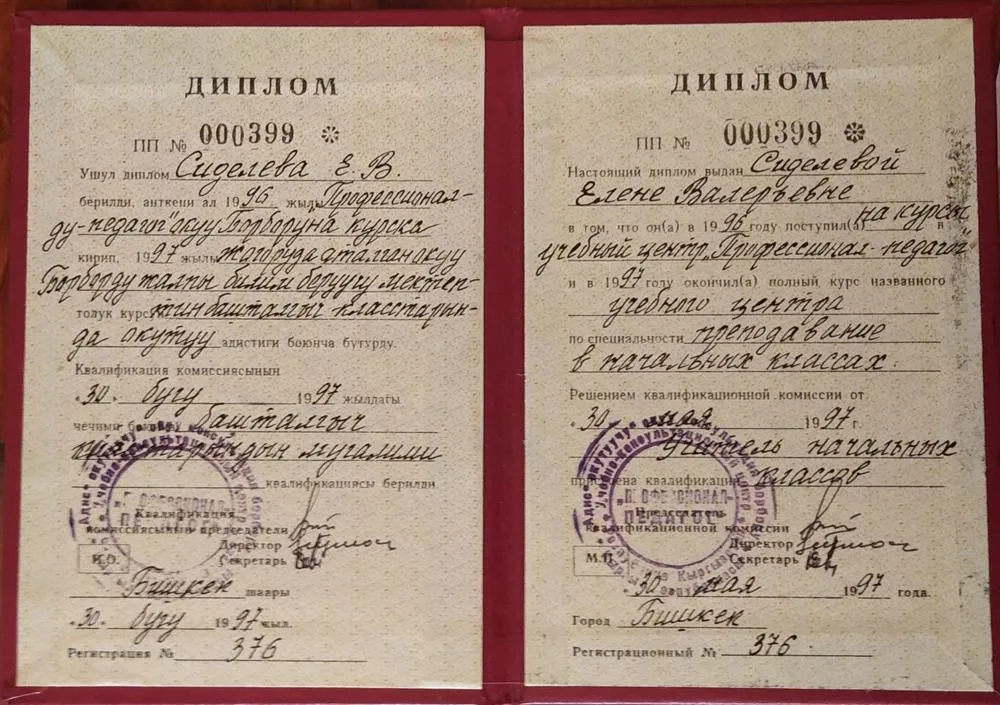 ДИПЛОМ
ПП № 000399
Ушул диплом Сиделева Е. В.
берилди, анткени ал 1996 жылы "Профессионал-
ду-педагог" окуу Борборуна курска
кирип, 1997 жылы жогоруда аталган окуу
Борборду жалпы билим берүүчү мектеп-
толук курс тин башталгыч класстарын-
да окутуу адистиги боюнча бүтүрдү.
Квалификация комиссиясынын
"30" бугу 1997 жылдагы
чечими боюнча башталгыч
класстарындын мугалими
квалификациясы берилди.
Квалификация
комиссиясынын председатели
Директор
Секретарь
М.О.
Бишкек шаары
"30" бугу 1997 жыл.
Регистрация № 376
ДИПЛОМ
ПП № 000399
Настоящий диплом выдан Сиделевой
Елене Валерьевне
в том, что он(а) в 1996 году поступил(а) на курсы в
учебный центр "Профессионал-педагог"
и в 1997 году окончил(а) полный курс названного
учебного центра
по специальности преподавание
в начальных классах.
Решением квалификационной комиссии от
"30" мая 1997 г.
учитель начальных
присвоена квалификация классов
Председатель
квалификационной комиссии
Директор
Секретарь
М.П.
"30" мая 1997 года.
Город Бишкек
Регистрационный № 376
ПРОФЕССИОНАЛ-
ПЕДАГОГ